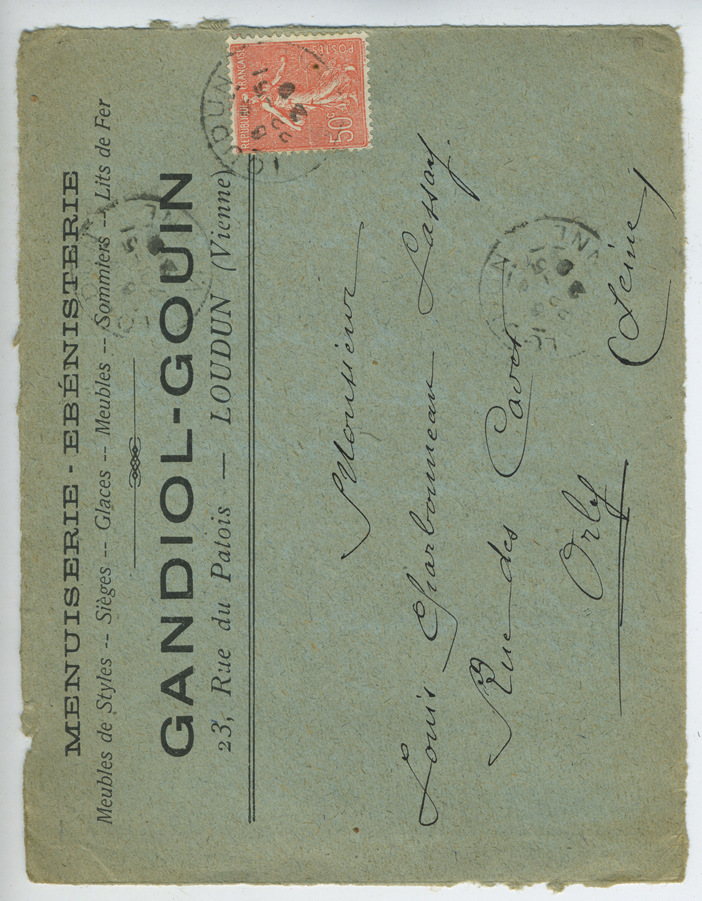 MENUISERIE - EBÉNISTERIE
Meubles de Styles -- Sièges -- Glaces -- Meubles -- Sommiers -- Lits de Fer
GANDIOL-GOUIN
23, Rue du Patois — LOUDUN (Vienne)
POSTES
REPUBLIQUE FRANÇAISE
50c
Monsieur
Louis Charbonneau Lassay.
Rue des
Orly
(Seine)